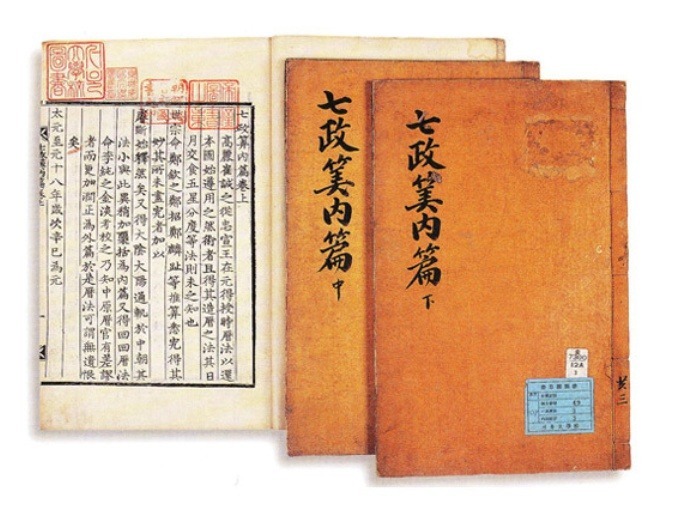 七政算內篇卷上
高麗崔誠之從忠宣王在元得授時曆法以還
本國始遵用之然術者且得其造曆之法其日
月交食五星分度等法則未之知也
世宗命鄭欽之鄭招鄭麟趾等推算悉究得其
妙其所未盡究者加以
睿斷始釋然矣又得大陰太陽通軌於中朝其
法小與此異稍加櫽括為內篇又得回回曆法
命李純之金淡考校之乃知中原曆官有差謬
者而更加潤正為外篇於是曆法可謂無遺恨
矣
太元至元十八年歲次辛巳為元
七政筭内篇 中
七政筭内篇 下
共三